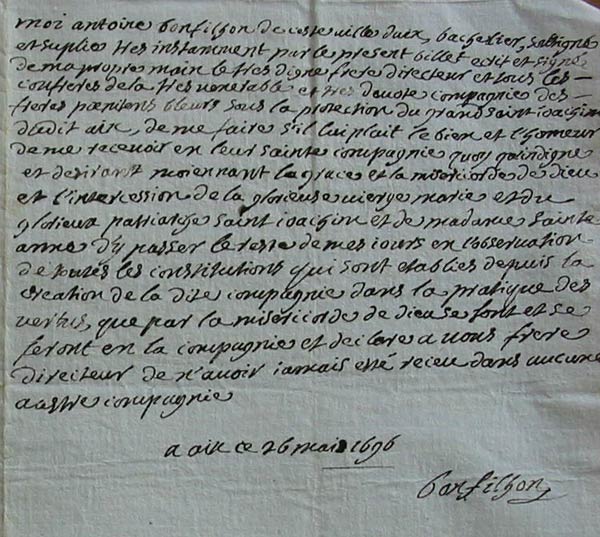 moi antoine bonfilhon de ceste ville daix, bachelier, soubsigné
et suplie tres instamment par le present billet ecrit et signé
de ma propre main le tres digne frere directeur et tous les
confreres de la tres venerable et tres devote compagnie des
freres pœnitens bleurs sous la protection du grand saint ioachim
dudit aix, de me faire s'il lui plait le bien et l'honneur
de me recevoir en leur sainte compagnie quoy qu'indigne
et desirant moiennant la grace et la misericorde de dieu
et l'intercession de la glorieuse vierge marie et du
glorieux patriarche saint ioachim et de madame sainte
anne d'y passer le reste de mes iours en l'observation
de toutes les constitutions qui sont etablies depuis la
creation de la dite compagnie dans la pratique des
vertus, que par la misericorde de dieu se font et se
feront en la compagnie et declare a vous frere
directeur de n'avoir iamais esté receu dans aucune
autre compagnie
a aix ce 26 mai 1696
bonfilhon